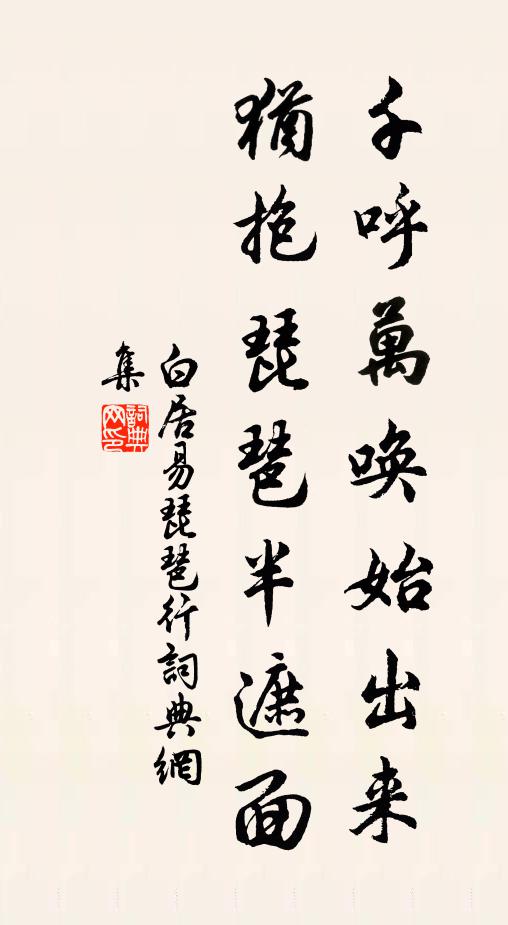 千呼萬唤始出来
猶抱琵琶半遮面
白居易琵琶行詞典網
集
詞典
网印